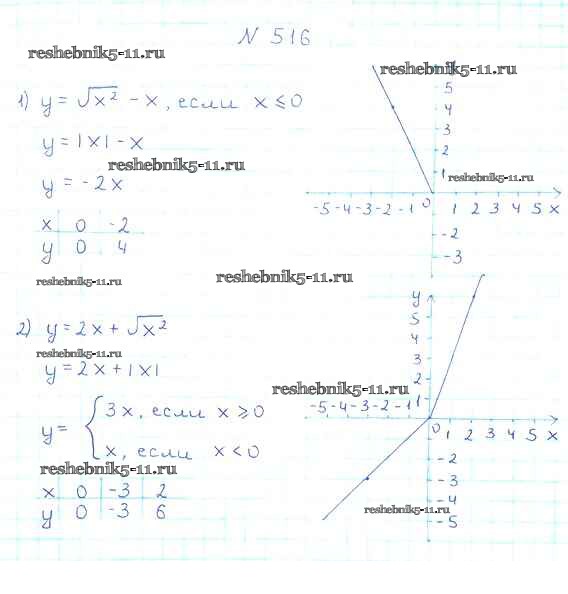 N 516
reshebnik5-11.ru
reshebnik5-11.ru
1) y = √x² - x, если x ≤ 0
y = |x| - x
reshebnik5-11.ru
y = -2x
x 0 -2
y 0 4
reshebnik5-11.ru
5
4
3
2
1
reshebnik5-11.ru
-5 -4 -3 -2 -1 0 1 2 3 4 5 x
-2
-3
reshebnik5-11.ru
2) y = 2x + √x²
reshebnik5-11.ru
y = 2x + |x|
y = { 3x, если x ≥ 0
x, если x < 0
reshebnik5-11.ru
x 0 -3 2
y 0 -3 6
y
5
4
3
2
reshebnik5-11.ru
1
-5 -4 -3 -2 -1 0 1 2 3 4 5 x
-2
-3
-4
reshebnik5-11.ru
-5